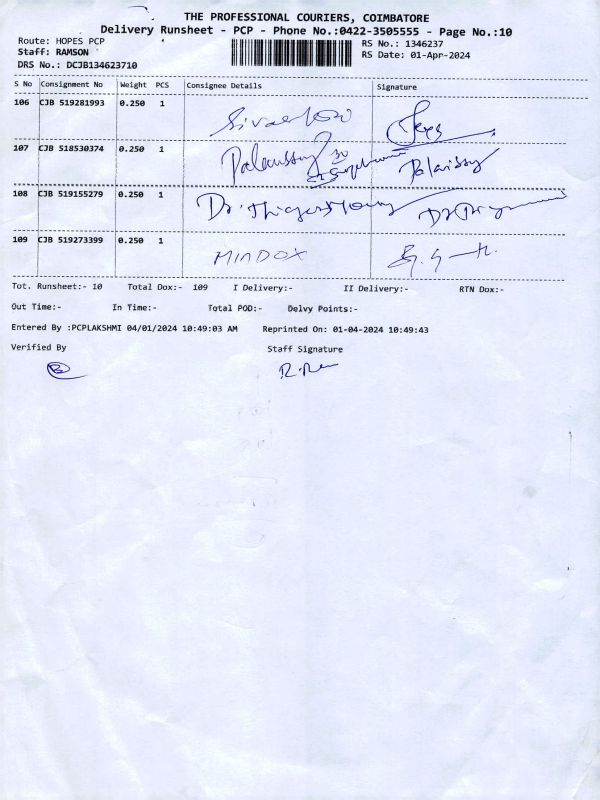 THE PROFESSIONAL COURIERS, COIMBATORE
Delivery Runsheet - PCP - Phone No.:0422-3505555 - Page No.:10
Route: HOPES PCP RS No.: 1346237
Staff: RAMSON RS Date: 01-Apr-2024
DRS No.: DCJB134623710
S No Consignment No Weight PCS Consignee Details Signature
106 CJB 519281993 0.250 1
107 CJB 518530374 0.250 1
108 CJB 519155279 0.250 1 Dr.
109 CJB 519273399 0.250 1 MINDOX
Tot. Runsheet:- 10 Total Dox:- 109 I Delivery:- II Delivery:- RTN Dox:-
Out Time:- In Time:- Total POD:- Delvy Points:-
Entered By :PCPLAKSHMI 04/01/2024 10:49:03 AM Reprinted On: 01-04-2024 10:49:43
Verified By Staff Signature